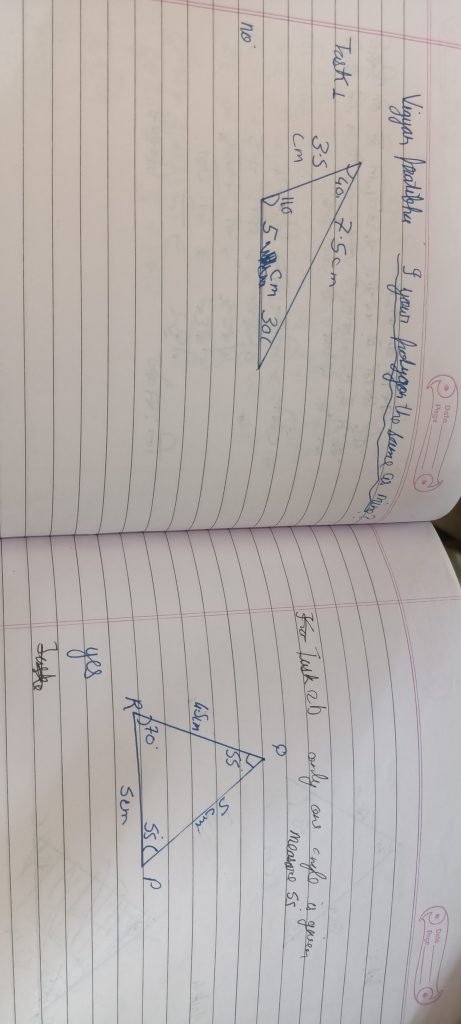 Date
Page
Vigyan Pratibha I your polygon the same as mine?
Task 1
40
3.5
cm
7.5cm
110
5 cm
30
no
Date
Page
For Task 2b only one angle is given
measure 55
Q
55
4.5cm
5
cm
R
70
55
P
5cm
yes